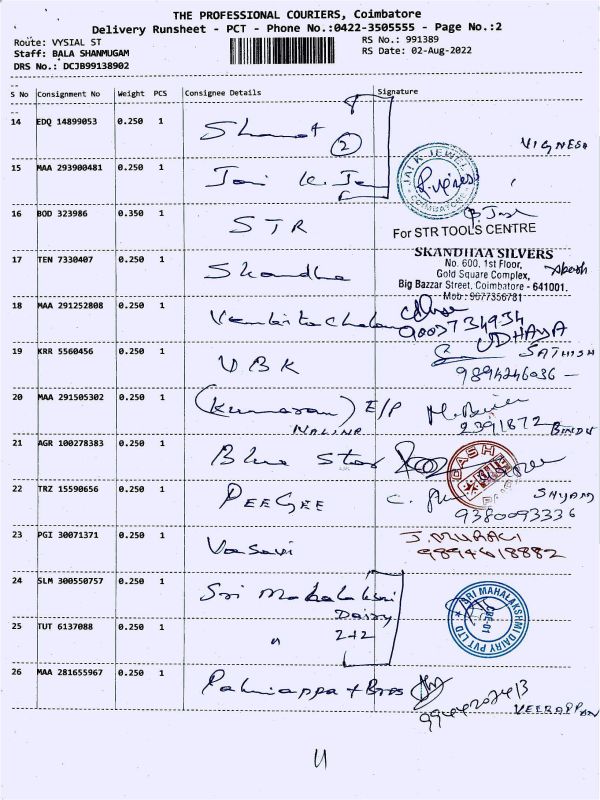 THE PROFESSIONAL COURIERS, Coimbatore
Delivery Runsheet - PCT - Phone No.:0422-3505555 - Page No.:2
Route: VYSIAL ST
RS No.: 991389
Staff: BALA SHANMUGAM
RS Date: 02-Aug-2022
DRS No.: DCJB99138902
S No Consignment No Weight PCS Consignee Details Signature
14 EDQ 14899053 0.250 1 2 VIGNESH
15 MAA 293900481 0.250 1 Jai K JAI K JEWEL COIMBATORE
16 BOD 323986 0.350 1 STR
For STR TOOLS CENTRE
17 TEN 7330407 0.250 1 Skandha SKANDHAA SILVERS
No. 600, 1st Floor,
Gold Square Complex,
Big Bazzar Street, Coimbatore - 641001.
Mob : 9677356781
18 MAA 291252808 0.250 1 Venkitachalam UDHAYA
19 KRR 5560456 0.250 1 VBK SATHISH
9894246036
20 MAA 291505302 0.250 1 (Kumaran) E/P
NALINA 2391872 BINDU
21 AGR 100278383 0.250 1 Blue Star
22 TRZ 15590656 0.250 1 PEEGEE SHYAM
9380093336
23 PGI 30071371 0.250 1 Vasavi J. MURALI
9894618882
24 SLM 300550757 0.250 1 Sri Mahalakshmi
Dairy SRI MAHALAKSHMI DAIRY PVT LTD CBE-01
25 TUT 6137088 0.250 1 " 2+2
26 MAA 281655967 0.250 1 Palniappa + Bros
VEERAPPAN